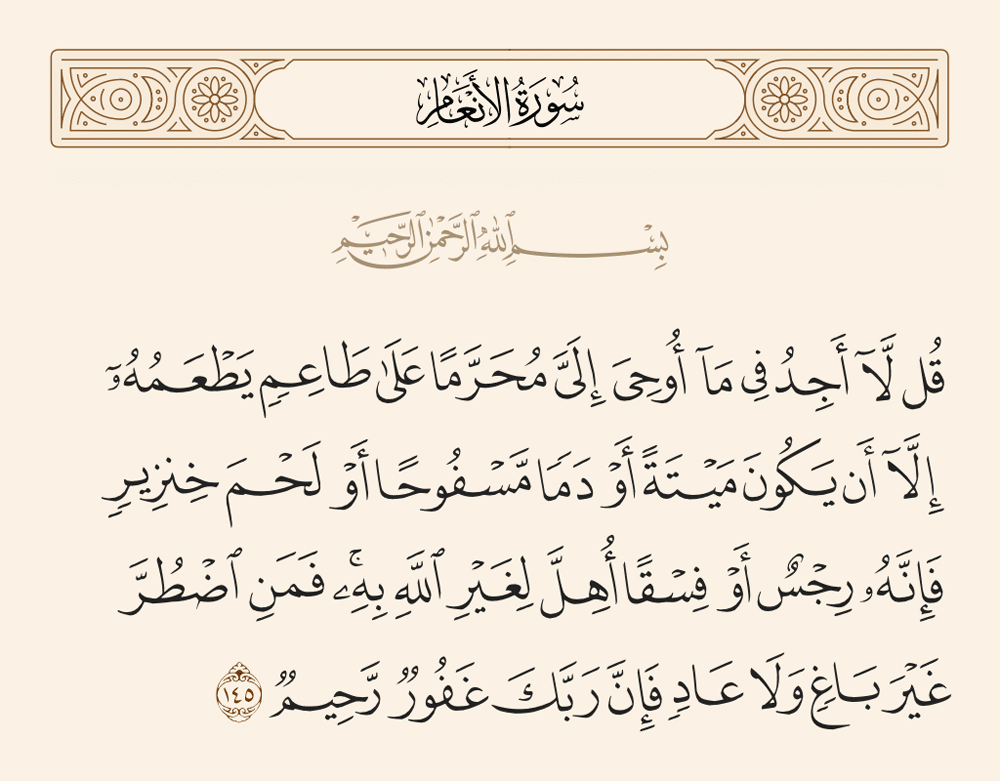 سُورَةُ الأَنْعَامِ
بِسْمِ ٱللَّهِ ٱلرَّحْمَٰنِ ٱلرَّحِيمِ
قُل لَّآ أَجِدُ فِى مَآ أُوحِىَ إِلَىَّ مُحَرَّمًا عَلَىٰ طَاعِمٍ يَطْعَمُهُۥٓ
إِلَّآ أَن يَكُونَ مَيْتَةً أَوْ دَمًا مَّسْفُوحًا أَوْ لَحْمَ خِنزِيرٍ
فَإِنَّهُۥ رِجْسٌ أَوْ فِسْقًا أُهِلَّ لِغَيْرِ ٱللَّهِ بِهِۦ ۚ فَمَنِ ٱضْطُرَّ
غَيْرَ بَاغٍ وَلَا عَادٍ فَإِنَّ رَبَّكَ غَفُورٌ رَّحِيمٌ ١٤٥